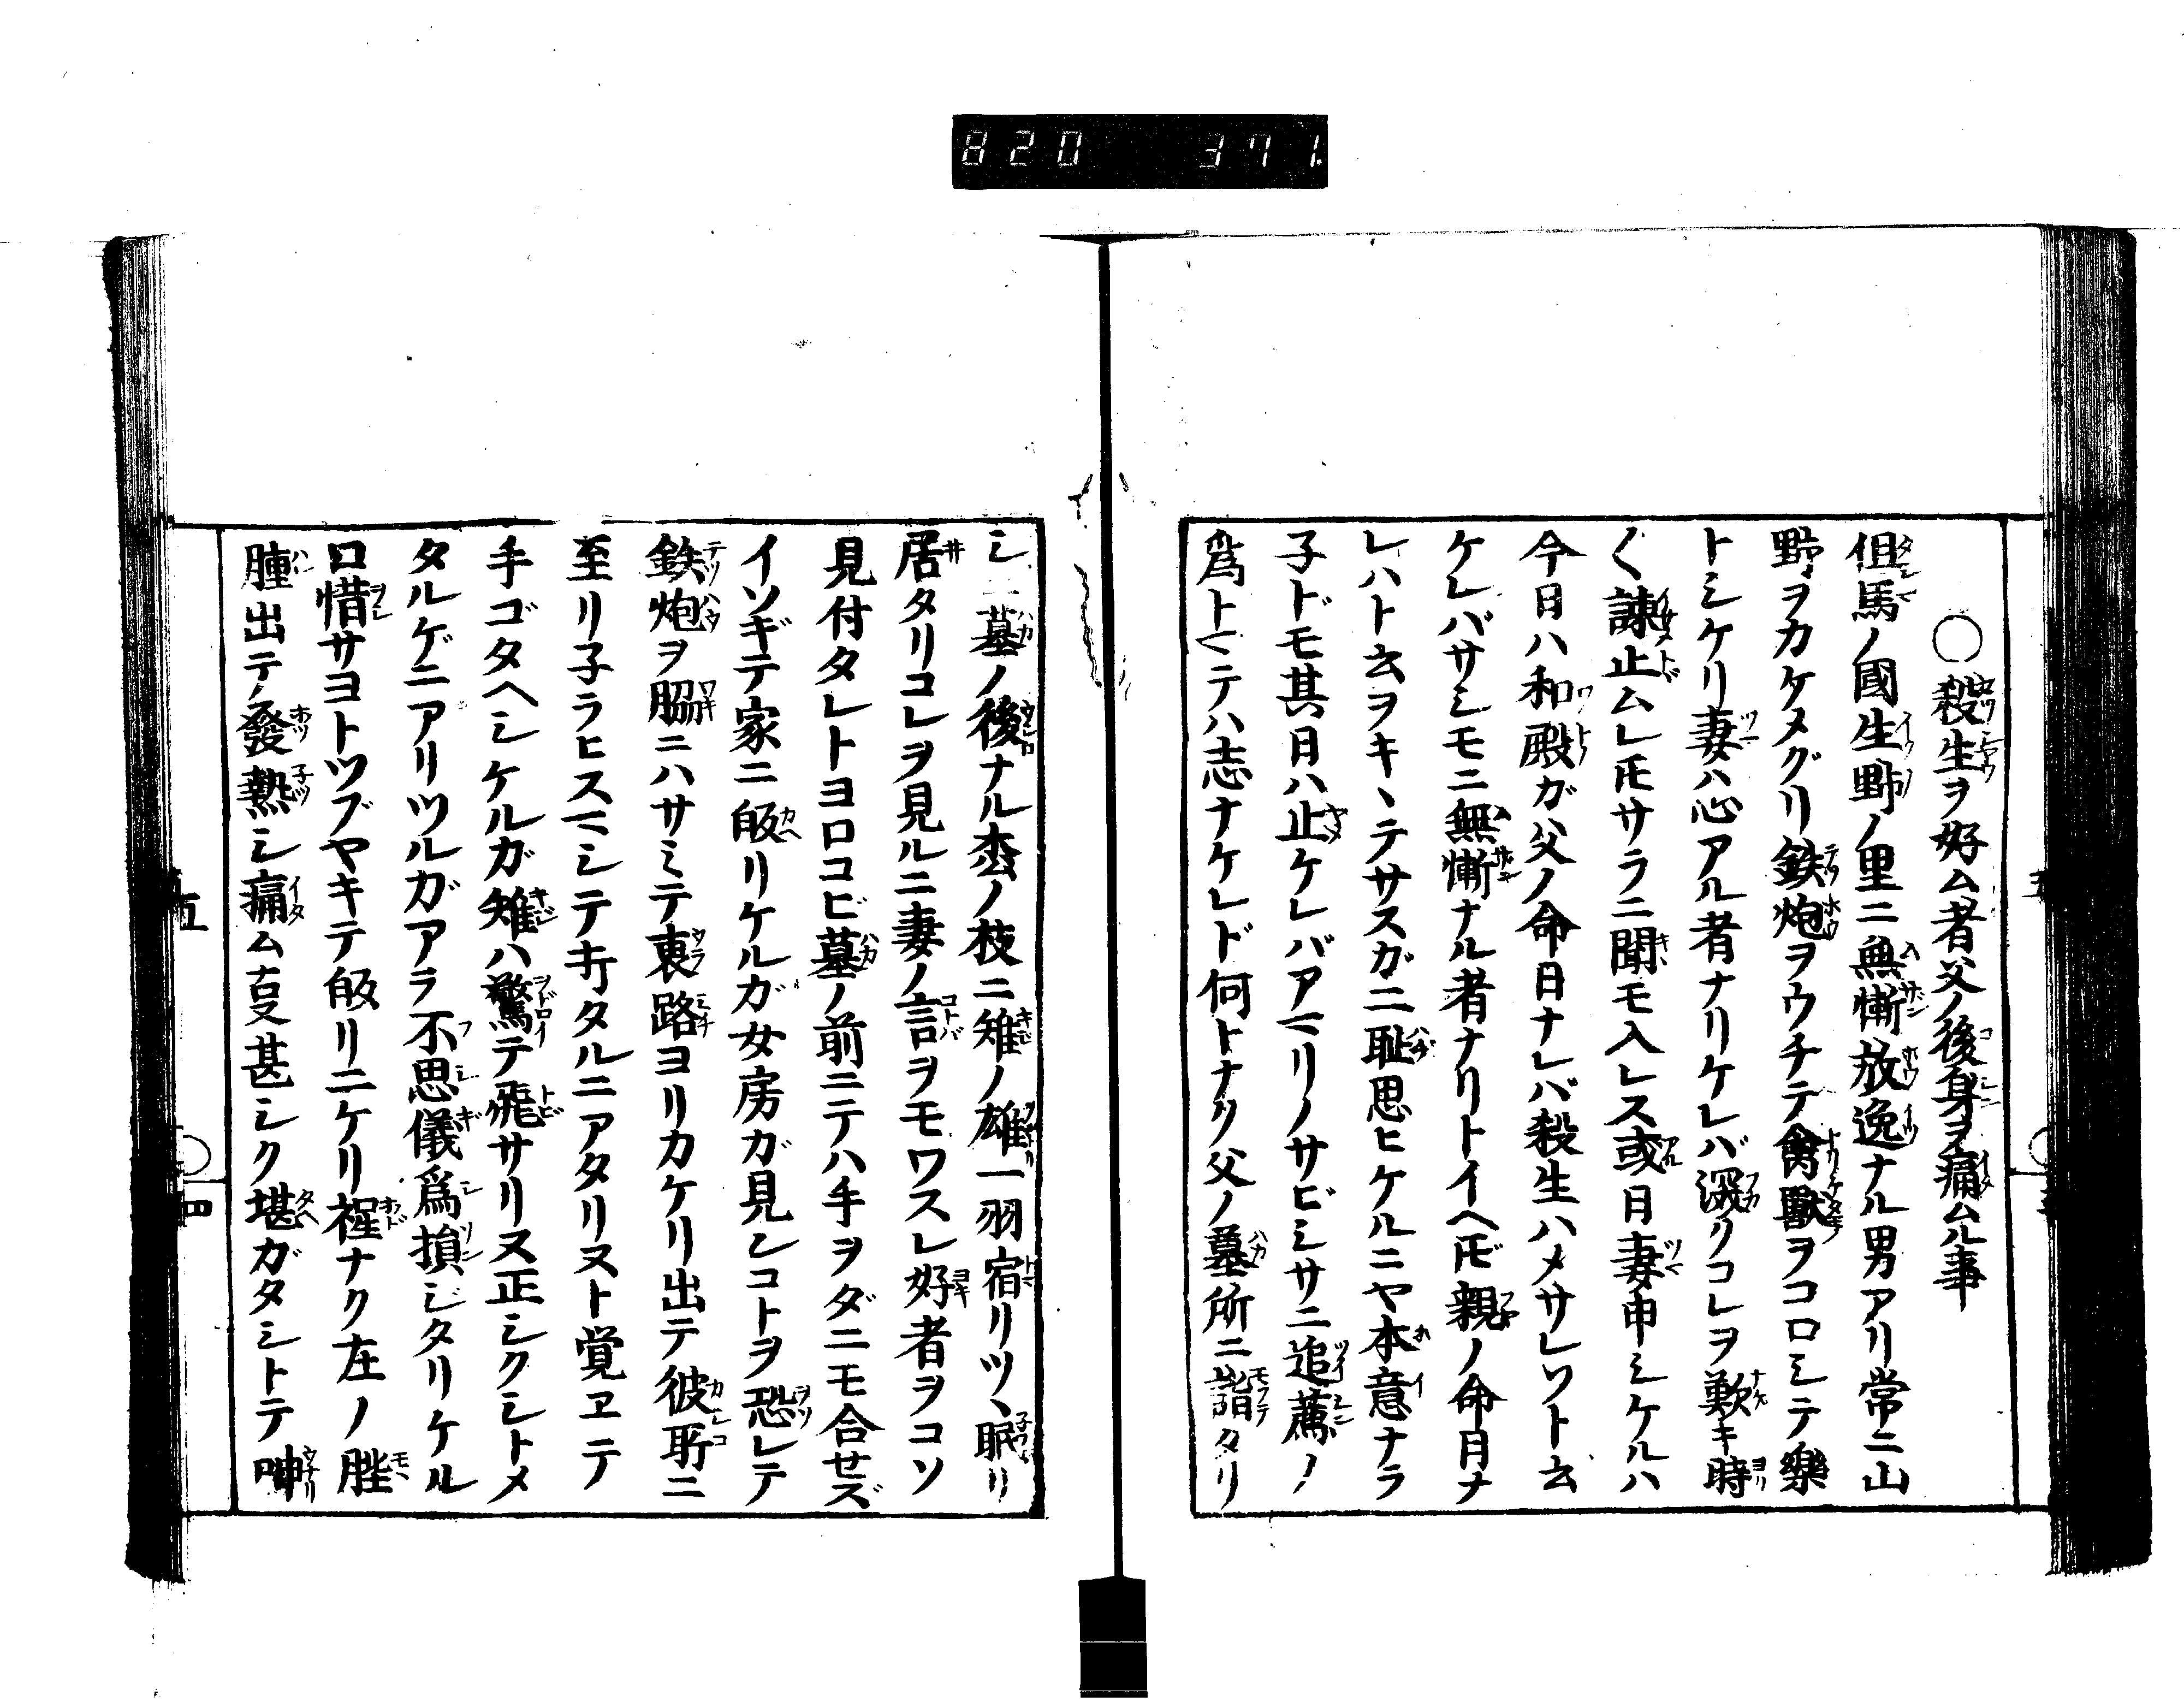 820 371.
○殺生ヲ好ム者父ノ後身ヲ痛ムル事
但馬ノ國生野ノ里ニ無慚放逸ナル男アリ常ニ山
野ヲカケメグリ鉄炮ヲウチテ禽獸ヲコロシテ樂
トシケリ妻ハ心アル者ナリケレバ深クコレヲ歎キ時
〱諫止ムレ𪜈サラニ聞モ入レス或日妻申シケルハ
今日ハ和殿ガ父ノ命日ナレバ殺生ハメサレソト云
ケレバサシモニ無慚ナル者ナリトイヘ𪜈親ノ命日ナ
レハト云ヲキヽテサスガニ耻思ヒケルニヤ本意ナラ
子ドモ其日ハ止ケレバアマリノサビシサニ追薦ノ
爲トマテハ志ナケレド何トナク父ノ墓所ニ詣タリ
シニ墓ノ後ナル枩ノ枝ニ雉ノ雄一羽宿リツヽ眠リ
居タリコレヲ見ルニ妻ノ言ヲモワスレ好者ヲコソ
見付タレトヨロコビ墓ノ前ニテハ手ヲダニモ合せズ
イソギテ家ニ皈リケルガ女房ガ見ンコトヲ恐レテ
鉄炮ヲ脇ニハサミテ裏路ヨリカケリ出テ彼所ニ
至リ子ラヒスマシテ打タルニアタリヌト覚エテ
手ゴタヘシケルガ雉ハ驚テ飛サリヌ正シクシトメ
タルゲニアリツルガアラ不思儀爲損ジタリケル
口惜サヨトツブヤキテ皈リニケリ程ナク左ノ䏶
腫出テ發熱シ痛ム亨甚シク堪ガタシトテ呻
五
四